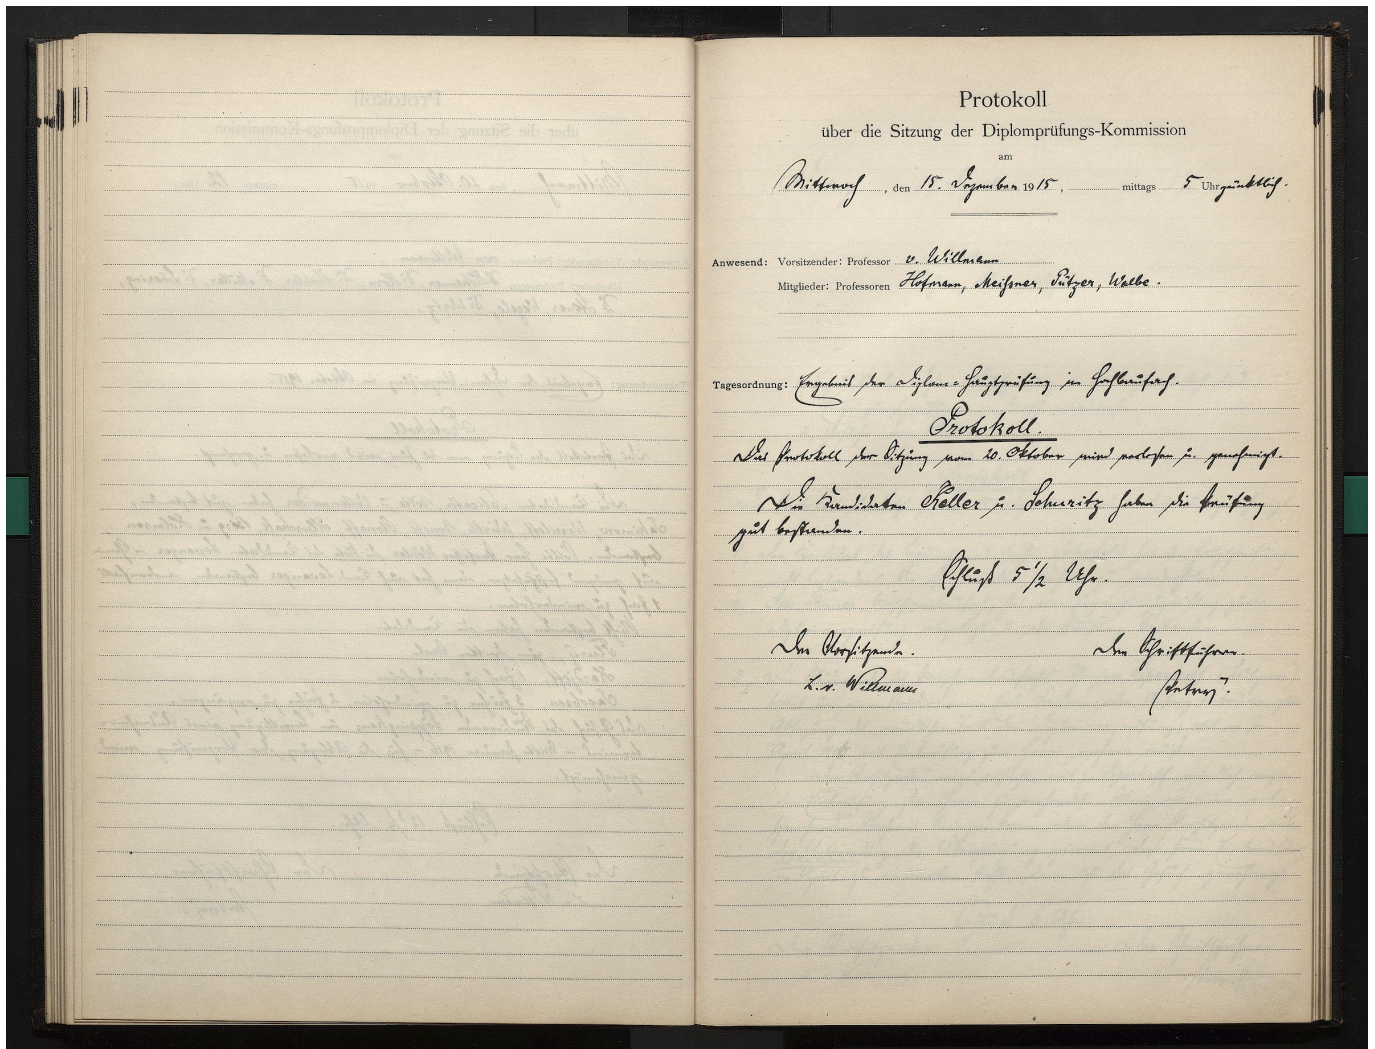 Protokoll
über die Sitzung der Diplomprüfungs-Kommission
am
Mittwoch, den 15. Dezember 1915, mittags 5 Uhr pünktlich.
Anwesend: Vorsitzender: Professor v. Willmann
Mitglieder: Professoren Hofmann, Meißner, Pützer, Walbe.
Tagesordnung: Ergebnis der Diplom-Hauptprüfung im Hochbaufach.
Protokoll.
Das Protokoll der Sitzung vom 20. Oktober wird verlesen u. genehmigt.
Die Kandidaten Keller u. Schmritz haben die Prüfung
gut bestanden.
Schluß 5 1/2 Uhr.
Der Vorsitzende. Der Schriftführer.
L. v. Willmann